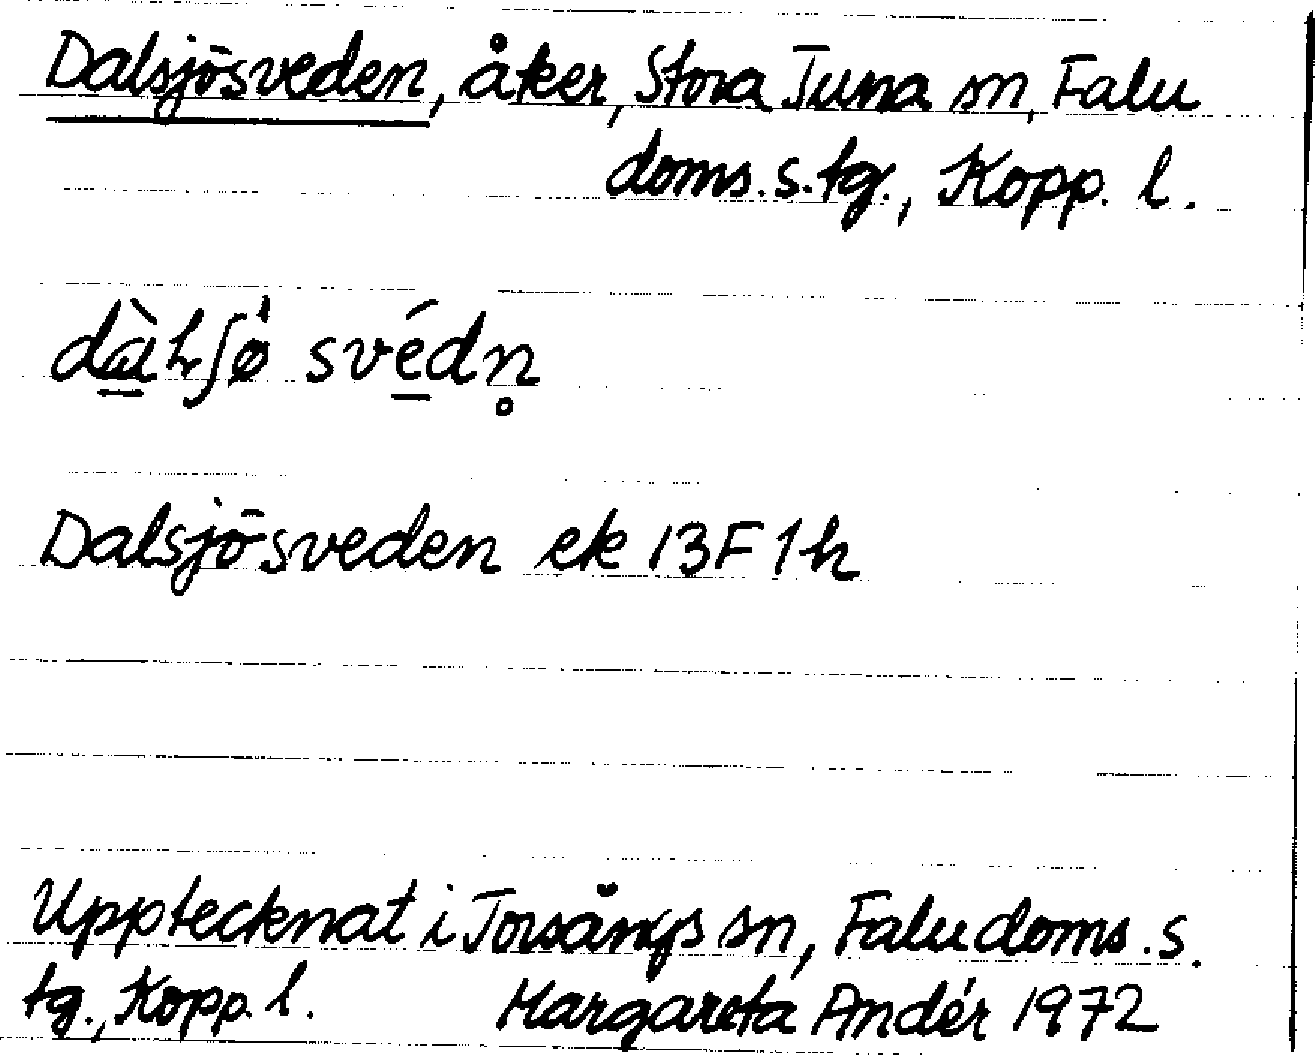 Dalsjösveden, åker, Stora Tuna sn, Falu
doms.s.tg., Kopp. l.
svédn̥
Dalsjösveden ek 13F 1h
Upptecknat i Torsångs sn, Falu doms.s.
tg., Kopp. l. Margareta Andér 1972